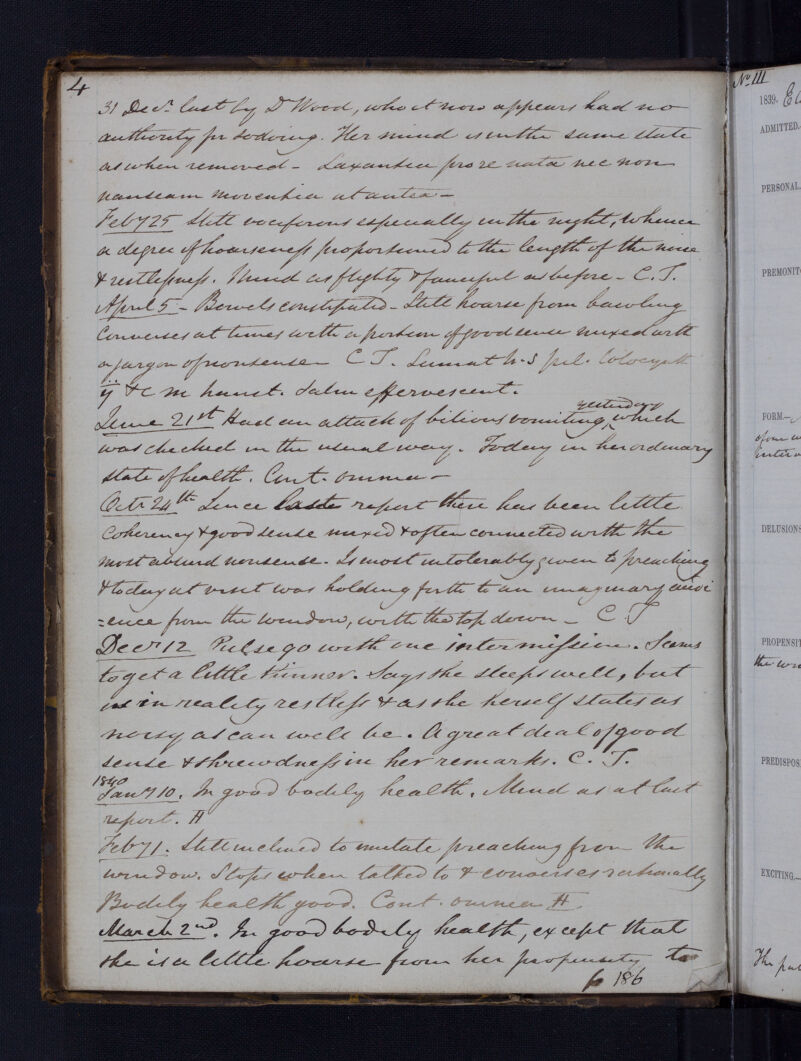 4
31 Decr. last by Dr Wood, who it now appears had no
authority for so doing. Her mind is in the same state
as when removed - Laxantia pro re nata nec non
nauseam moventia ut antea -
Feby 25 Still vociferous especially in the night, whence
a degree of hoarseness proportioned to the length of the noise
& restlessness. Mind as flighty & fanciful as before - C. T.
April 5 - Bowels constipated - Still hoarse from bawling
Converses at times with a portion of good sense mixed with
a jargon of nonsense - C T. Sumat h. s pil. Colocynth
ij & c m haust. Salin effervescent.
June 21st Had an attack of bilious vomiting yesterday which
was checked in the usual way. Today in her ordinary
state of health. Cont. omnia -
Octr 24th Since last report there has been little
coherency & good sense mixed & often connected with the
most absurd nonsense. Is most intolerably given to preaching
& today at visit was holding forth to an imaginary audi
=ence from the window, with the top down - C T
Decr 12 Pulse 90 with one intermission. Seems
to get a little thinner. Says she sleeps well, but
is in reality restless & as she herself states as
noisy as can well be. A great deal of good
sense & shrewdness in her remarks. C. T.
1840
Jany 10. In good bodily health. Mind as at last
report. H
Feby 1. Still inclined to imitate preaching from the
window. Stops when talked to & converses rationally
Bodily health good. Cont. omnia H
March 2nd. In good bodily health, except that
she is a little hoarse from her propensity to
p 186
No. III
1839.
ADMITTED,
PERSONAL
PREMONIT
FORM.—
DELUSIONS
PROPENSIT
PREDISPOS
EXCITING.—
The